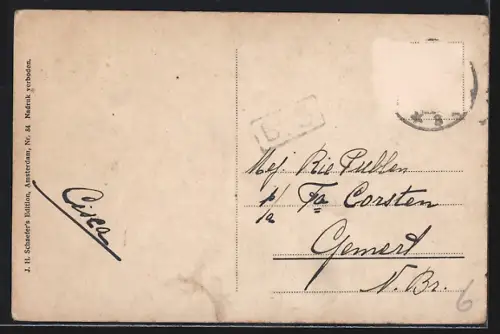 J. H. Schaefer's Edition, Amsterdam, Nr. 84 Nadruk verboden.
Mej. Rie
p/a Fa Corsten
Gemert
N. Br.
6